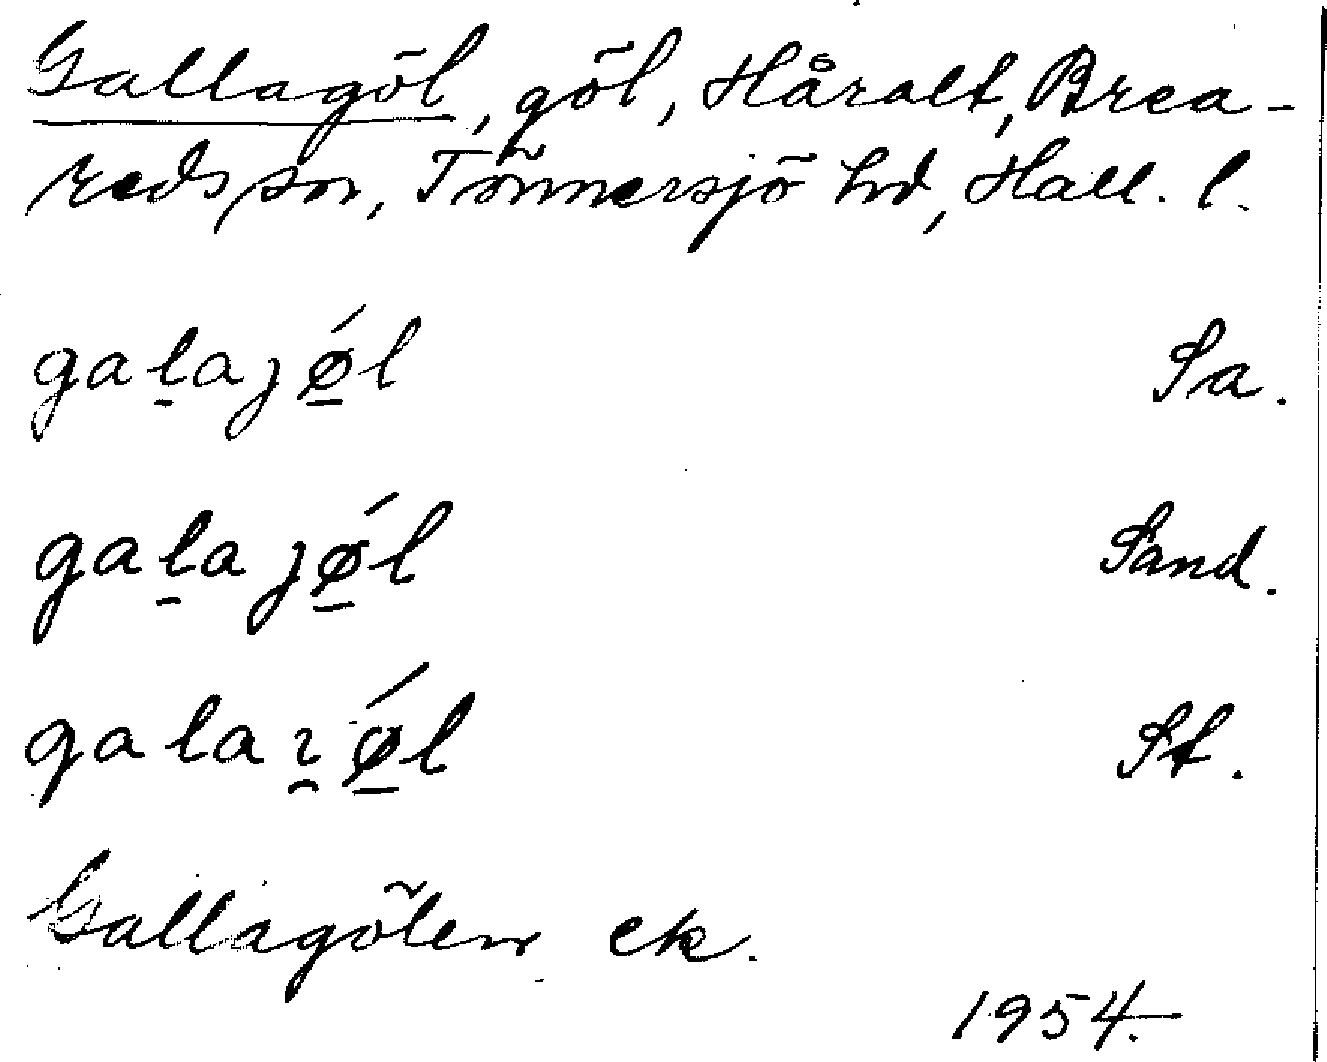 Gallagöl, göl, Håralt, Brea-
reds sn, Tönnersjö hd, Hall. l.
gal̠ajǿ̠l Sa.
gal̠ajǿ̠l Sand.
galaı̯ǿ̠l St.
Gallagölen ek.
1954.